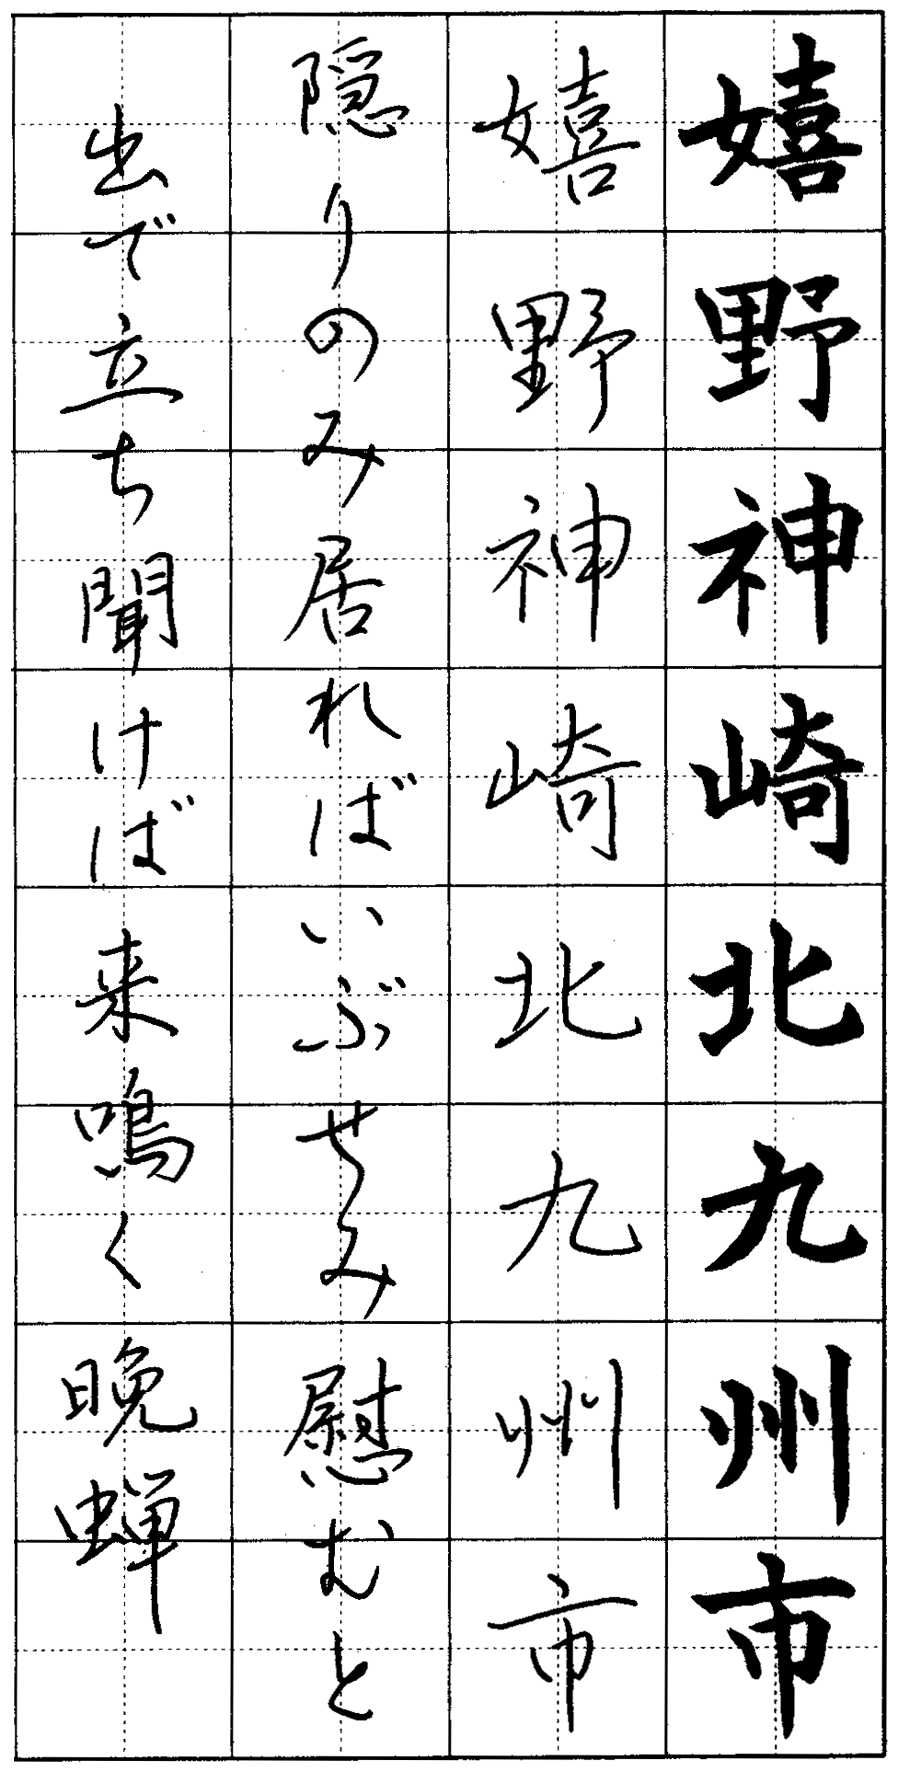 嬉野神崎北九州市
嬉野神崎北九州市
隠りのみ居ればいぶせみ慰むと
出で立ち聞けば来鳴く晩蝉